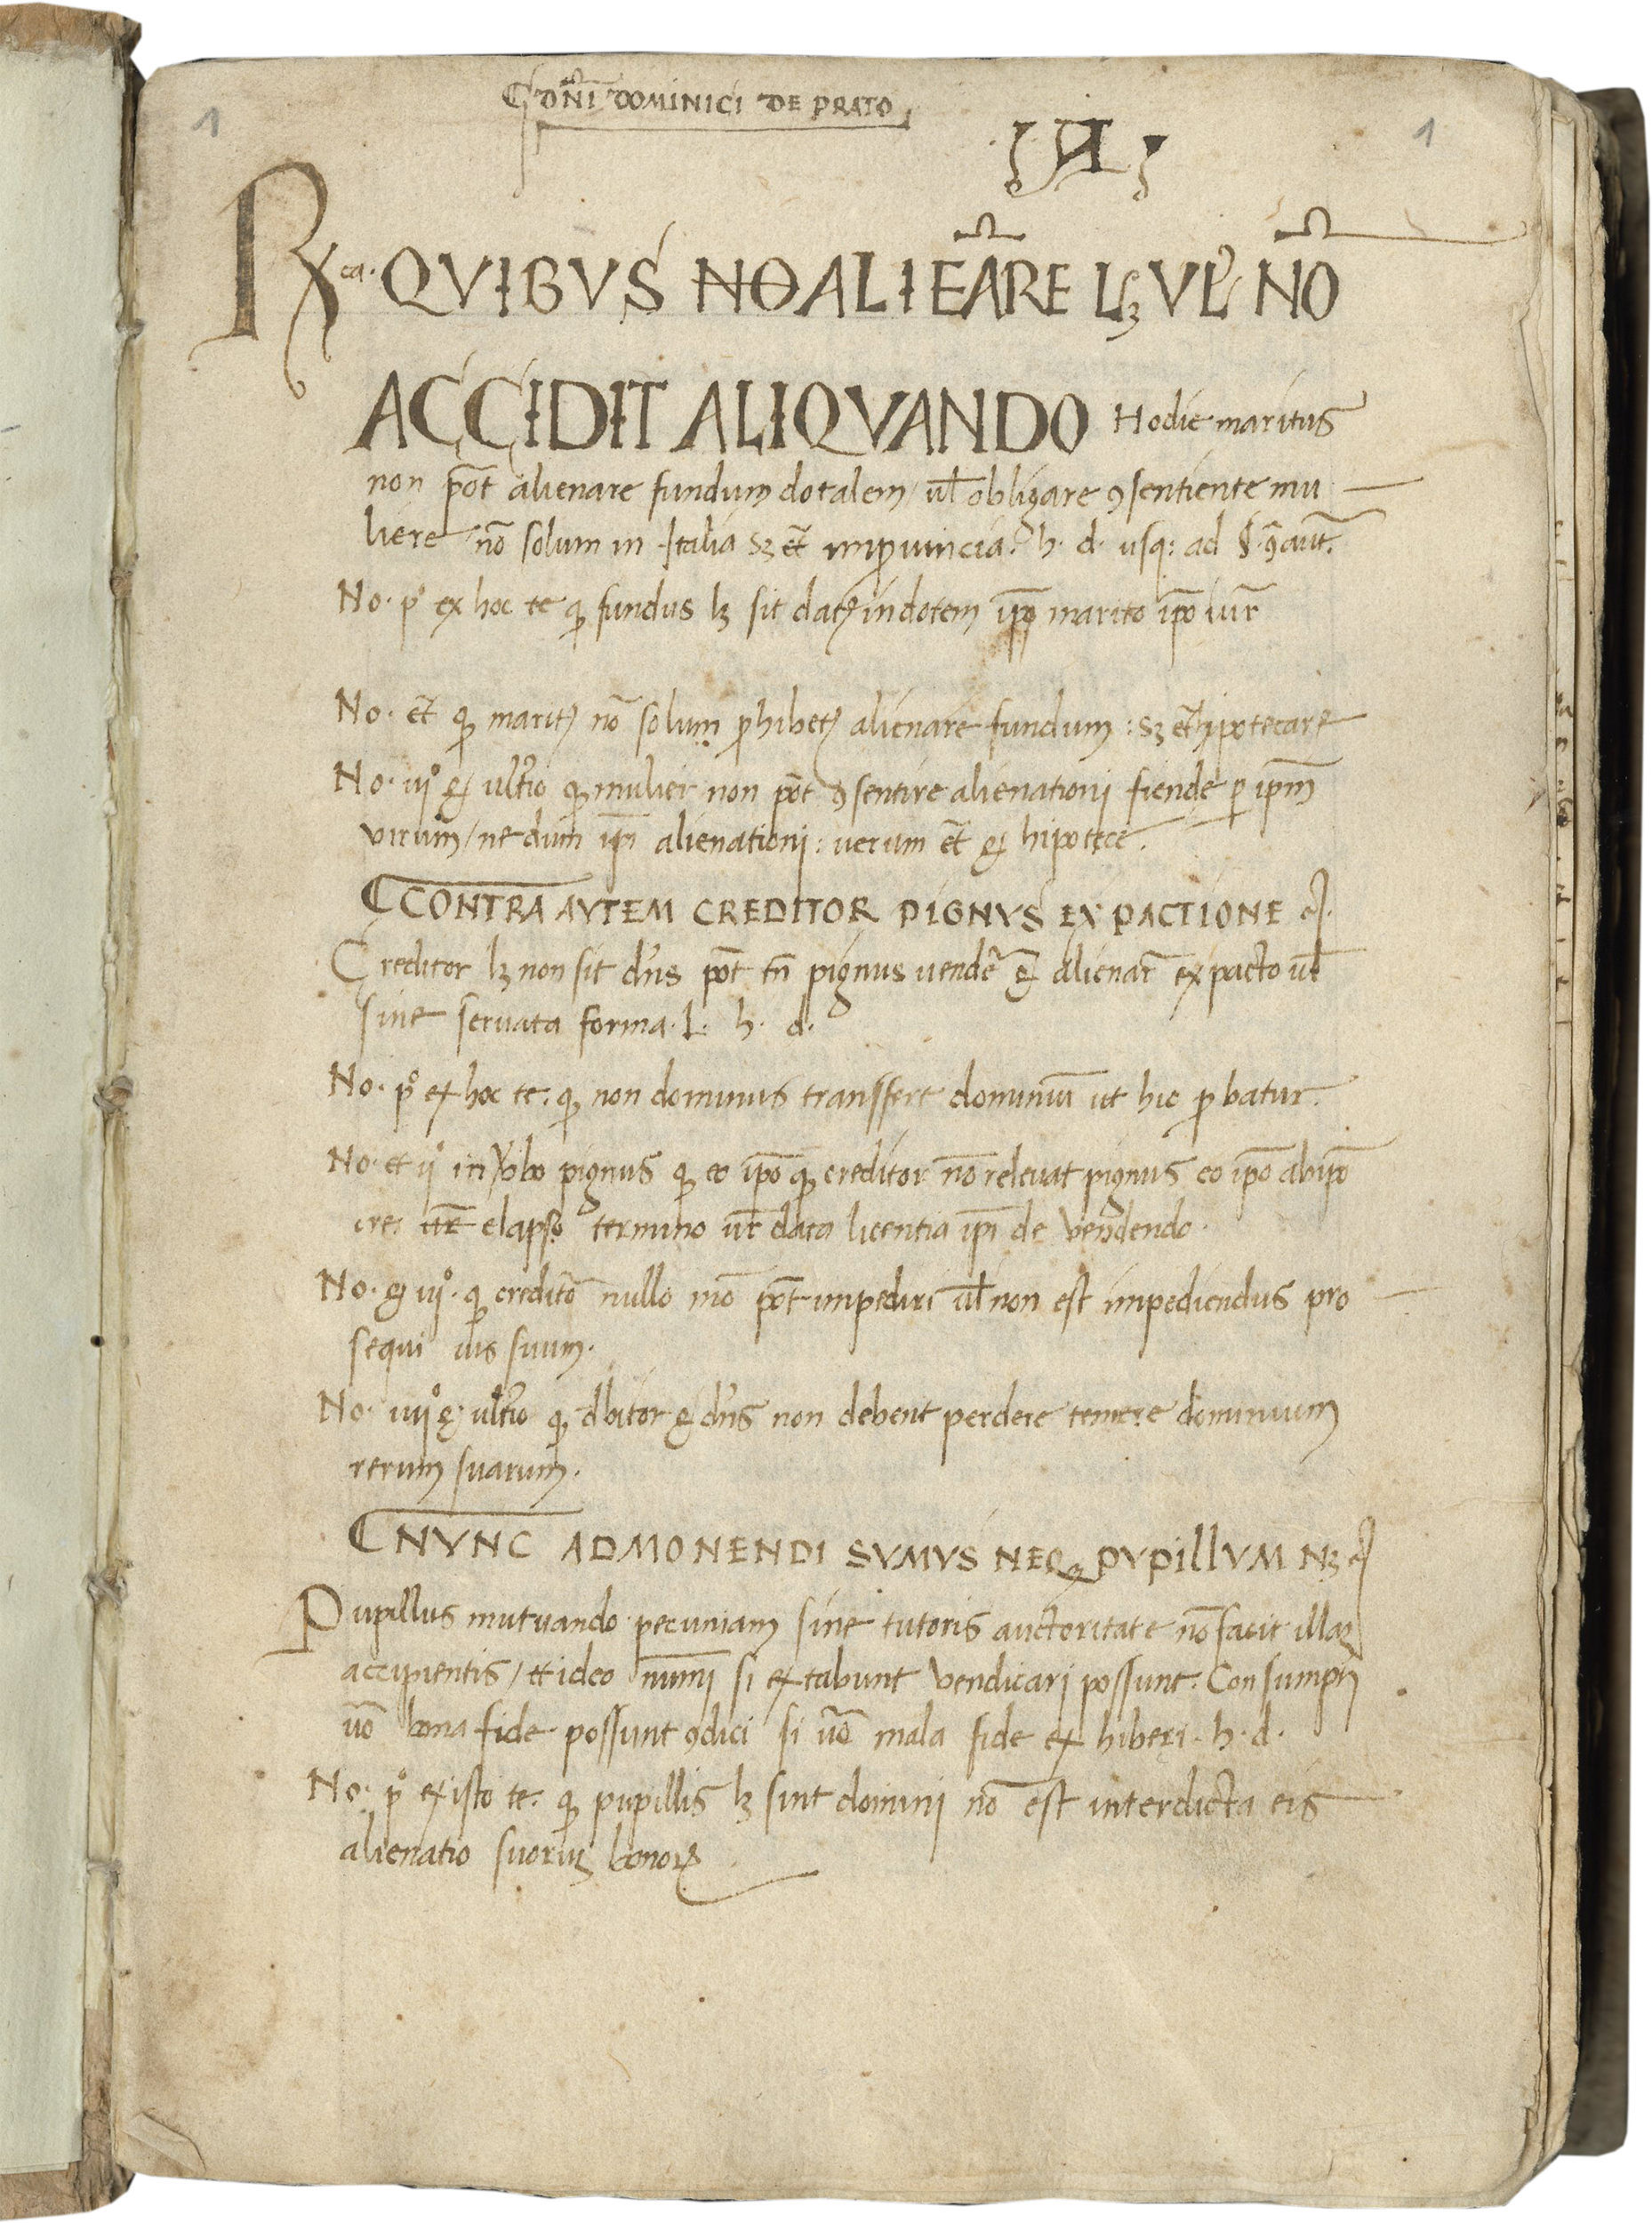 1
Dn̄i DOMINICI DE PRATO
1
Rca. QVIBVS NO ALIEĀRE Lꝫ VL' NŌ
ACCIDIT ALIQVANDO Hodie maritus
non pōt alienare fundum dotalem / ul̄ obligare ꝯsentiente mu
liere nō solum in Italia sꝫ et̄ in ꝓuincia. h. d. usqꝫ ad §. ꝯ aut̄.
No. p° ex hoc te ꝙ fundus lꝫ sit datꝰ in dotem ip̄o marito ip̄o iur̄
No. et̄ ꝙ maritꝰ nō solum ꝓhibetꝰ alienare fundum : sꝫ et̄ ipotecare
No. iij° & ult̄io ꝙ mulier non pōt ꝯsentire alienationi fiende ꝑ ip̄m
virum / ne dum ip̄i alienationi : uerum et̄ & hipotece.
CONTRA AVTEM CREDITOR PIGNVS EX PACTIONE &.
Creditor lꝫ non sit dn̄s pōt tn̄ pignus uendē & alienar̄ ex pacto ul̄
sine seruata forma. l. h. d.
No. p° ex hoc te. ꝙ non dominus transffert dominiū ut hic ꝓbatur.
No. et ij° in v̄bo pignus ꝙ eo ip̄o ꝙ creditor nō releuat pignus eo ip̄o ab ip̄o
elapso termino ut̄ data licentia ip̄i de vendendo.
No. & iij°. ꝙ creditō nullo mō pōt impediri ul̄ non est impediendus pro
sequi ius suum.
No. iiij° & ult̄io ꝙ dbitor & dn̄s non debent perdere temere dominium
rerum suarum.
NVNC ADMONENDI SVMVS NEQꝫ PVPILLVM Nꝫ &
Pupillus mutuando pecuniam sine tutoris auctoritate nō facit illaꝫ
accipientis / et ideo num̄i si extabunt vendicari possunt. Consumpti
uō bona fide possunt ꝯdici si uō mala fide exhiberi. h. d.
No. p° ex isto te. ꝙ pupillis lꝫ sint domini nō est interdicta eis
alienatio suoruꝫ bonoꝝ